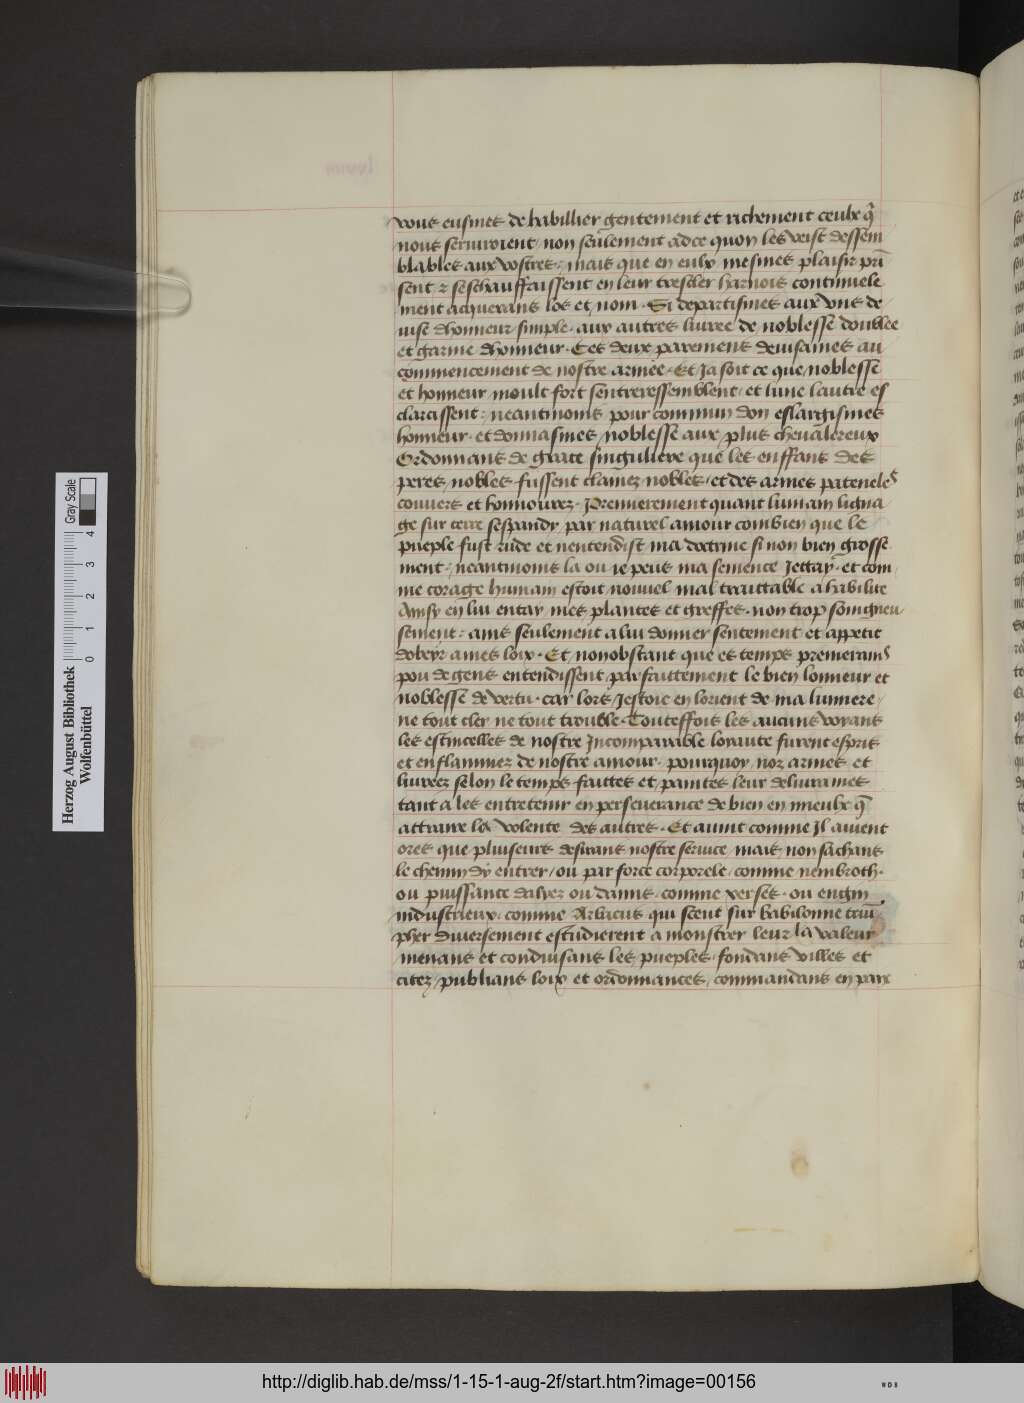 vous eusmes de habillier gentement et richement ceulx q̄
nous seruiroient / non seulement adce quon les veist dessem
blables aux vostres / mais que en eulx mesmes plaisir prī
sent z seschauffaissent en leur trescler harnois continuele
ment acquerans los et nom · Si departismes aux vns de
uise dhonneur simple · aux autres liuree de noblesse doublee
et garnie dhonneur · Ces deux paremens deuisames au
cōmencement de nostre armee · Et Ja soit ce que noblesse
et honneur moult fort sentreressemblent / et lune lautre es
clarcissent : neantmoins pour commun don eslargismes
honneur · et donnasmes / noblesse aux plus cheualereux
Ordonnans de grace singuliere que les enffans des
peres / nobles fussent clamez nobles / et des armes paterneles
couuers et honnourez · Premierement quant humain ligna
ge sur terre sespandy / par naturel amour combien que le
pueple fust rude et nentendist ma doctrine si non bien grosse
ment : neantmoins la ou ie peus ma semence Jettay · et com
me corage humain estoit nouuel mal traittable a habilite
Ainsy en lui entay mes plantes et greffes · non trop soingneu
sement : ains seulement a lui donner sentement et appetit
dobeyr a mes loix · Et / nonobstant que es temps premerains
pou de gens entendissent parfaittement le bien lonneur et
noblesse de vertu · car lors / Jestoie en lorient de ma lumiere /
ne tout cler ne tout trouble · Touteffois les aucuns voyans
les estincelles de nostre Jncomparable loyaute furent espris
et enflammez de nostre amour · pourquoy / noz armes et
liurees selon le temps faittes et paintes leur deliurames
tant a les entretenir en perseuerance de bien en mieulx q̄
attraire la volente des autres · Et auint comme Jl auient
ores que pluiseurs desirans nostre seruice / mais non sachans
le chemin dy entrer / ou par force corporele / comme nembroth ·
ou puissance dalyez ou damis · comme xerses · ou engin
industrieux · comme Arbacus qui sceut sur babilonne triū
pher diuersement estudierent a monstrer leur la valeur
menans et conduisans les pueples / fondans villes et
citez / publians loix et ordonnances / commandans en paix
Herzog August Bibliothek
Wolfenbüttel
Gray Scale
0 1 2 3 4
http://diglib.hab.de/mss/1-15-1-aug-2f/start.htm?image=00156
WDB